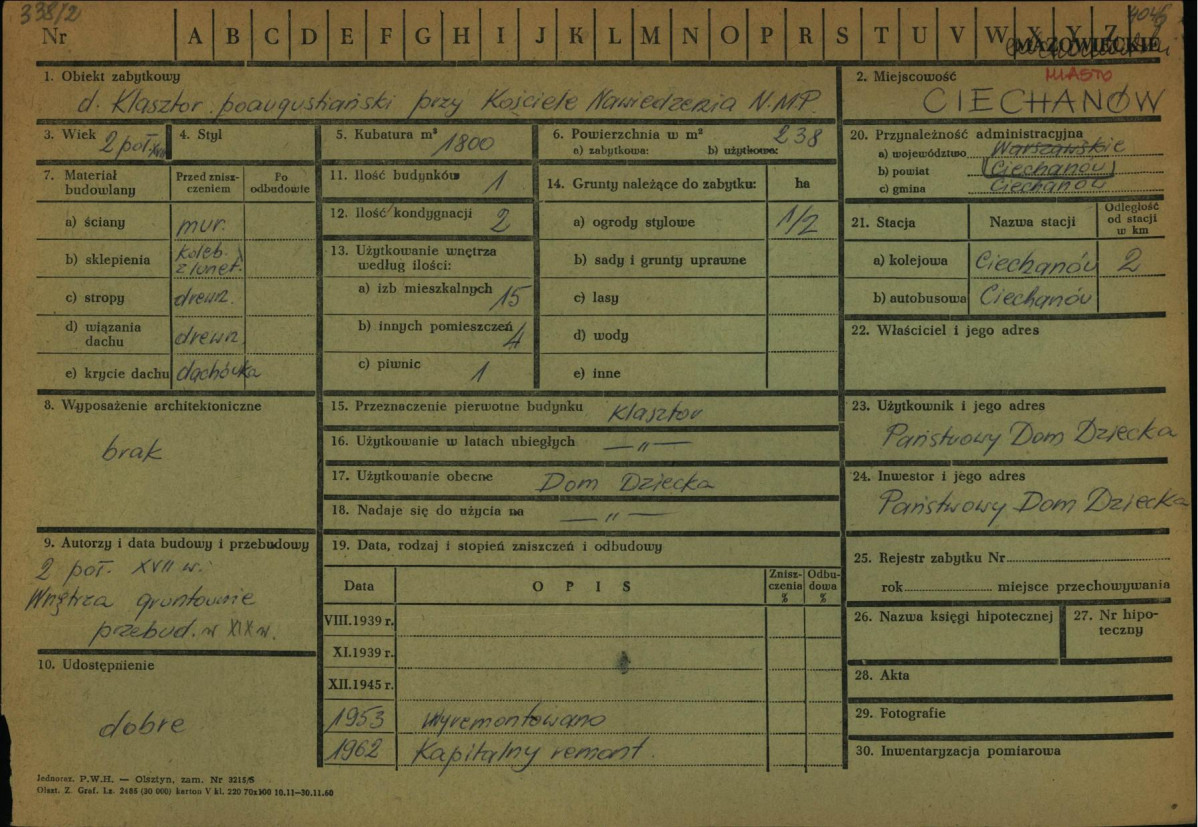 338/2
Nr A B C D E F G H I J K L M N O P R S T U V W X Y Z
MAZOWIECKIE
1. Obiekt zabytkowy
d. Klasztor poaugustiański przy Kościele Nawiedzenia N.M.P.
2. Miejscowość
MIASTO
CIECHANÓW
3. Wiek 2 poł. XVII
4. Styl
5. Kubatura m³ 1800
6. Powierzchnia w m² 238
a) zabytkowa: b) użytkowa:
20. Przynależność administracyjna
a) województwo Warszawskie
b) powiat Ciechanów
c) gmina Ciechanów
7. Materiał budowlany
Przed zniszczeniem
Po odbudowie
a) ściany mur.
b) sklepienia koleb. z lunet.
c) stropy drewn.
d) wiązania dachu drewn.
e) krycie dachu dachówka
11. Ilość budynków 1
12. Ilość kondygnacji 2
13. Użytkowanie wnętrza według ilości:
a) izb mieszkalnych 15
b) innych pomieszczeń 4
c) piwnic 1
14. Grunty należące do zabytku: ha
a) ogrody stylowe 1/2
b) sady i grunty uprawne
c) lasy
d) wody
e) inne
21. Stacja
Nazwa stacji
Odległość od stacji w km
a) kolejowa Ciechanów 2
b) autobusowa Ciechanów
22. Właściciel i jego adres
8. Wyposażenie architektoniczne
brak
15. Przeznaczenie pierwotne budynku klasztor
16. Użytkowanie w latach ubiegłych — " —
17. Użytkowanie obecne Dom Dziecka
18. Nadaje się do użycia na — " —
23. Użytkownik i jego adres
Państwowy Dom Dziecka
24. Inwestor i jego adres
Państwowy Dom Dziecka
9. Autorzy i data budowy i przebudowy
2 poł. XVII w.
Wnętrza gruntownie
przebud. w XIX w.
10. Udostępnienie
dobre
19. Data, rodzaj i stopień zniszczeń i odbudowy
Data O P I S Zniszczenia % Odbudowa %
VIII.1939 r.
XI.1939 r.
XII.1945 r.
1953 Wyremontowano
1962 Kapitalny remont.
25. Rejestr zabytku Nr
rok miejsce przechowywania
26. Nazwa księgi hipotecznej
27. Nr hipoteczny
28. Akta
29. Fotografie
30. Inwentaryzacja pomiarowa
Jednoraz. P.W.H. — Olsztyn, zam. Nr 3215/S
Olszt. Z. Graf. Lz. 2485 (30 000) karton V kl. 220 70x100 10.11—30.11.60